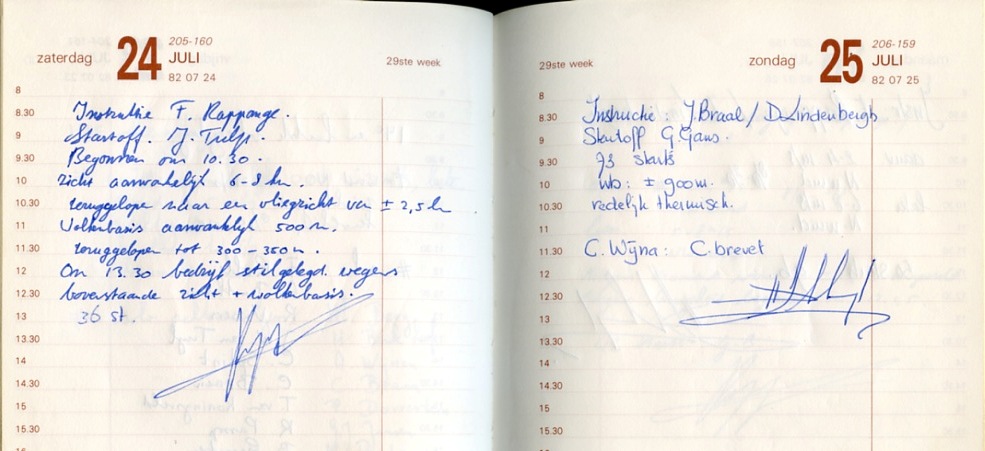 zaterdag 24 205-160 JULI 82 07 24
29ste week
8
8.30 Instruktie F. Rappange.
9 Startoff. J. Tulp.
9.30 Begonnen om 10.30.
10 zicht aanvankelijk 6-8 km.
10.30 teruggelopen naar een vliegzicht van ± 2,5 km
11 Wolkenbasis aanvankelijk 500 m.
11.30 teruggelopen tot 300-350 m.
12 Om 13.30 bedrijf stilgelegd wegens
12.30 bovenstaande zicht + wolkenbasis.
13 36 st.
13.30
14
14.30
15
15.30
29ste week
zondag 25 206-159 JULI 82 07 25
8
8.30 Instructie: J. Braal / D. Lindenbergh
9 Startoff G. Gans.
9.30 73 starts
10 wb: ± 900m.
10.30 redelijk thermisch.
11
11.30 C. Wijna: C. brevet
12
12.30
13
13.30
14
14.30
15
15.30